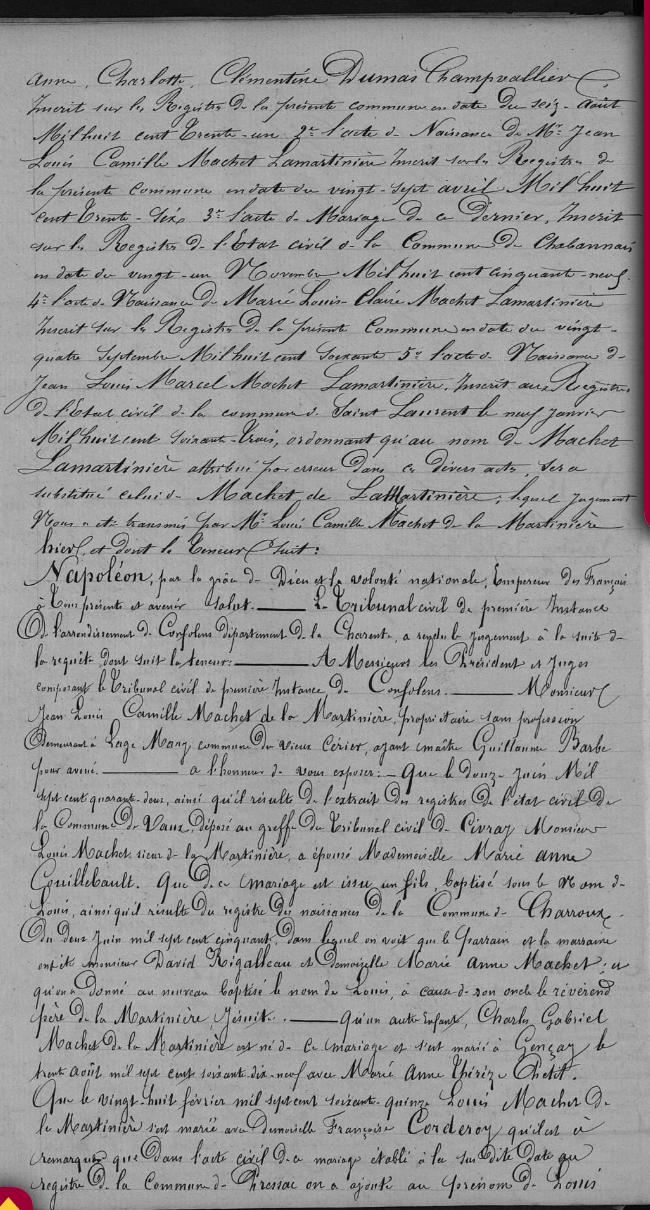 Anne, Charlotte, Clémentine Dumas Champvallier
Inscrit sur les Registres de la présente commune en date du seize Août
Mil huit cent trente-un 2º l'acte de Naissance de Mr Jean
Louis Camille Machet Lamartinière Inscrit sur les Registres de
la présente commune en date du vingt-sept avril Mil huit
cent trente-six 3º l'acte de Mariage de ce Dernier, Inscrit
sur les Registres de l'Etat civil de la Commune de Chabannais
en date du vingt-un Novembre Mil huit cent cinquante-neuf.
4º l'acte de Naissance de Marie Louise Claire Machet Lamartinière
Inscrit sur les Registres de la présente Commune en date du vingt-
quatre Septembre Mil huit cent soixante 5º l'acte de Naissance de
Jean Louis Marcel Machet Lamartinière, Inscrit aux Registres
de l'Etat civil de la commune de Saint Laurent le neuf Janvier
Mil huit cent soixante-trois, ordonnant qu'au nom de Machet
Lamartinière attribué par erreur dans ces divers actes, sera
substitué celui de Machet de LaMartinière; lequel Jugement
Nous a été transmis par Mr Louis Camille Machet de la Martinière
hier, et dont la teneur suit:
Napoléon, par la grâce de Dieu et la volonté nationale, Empereur des Français
à tous présents et avenir salut. — Le Tribunal civil de première Instance
De l'arrondissement de Confolens département de la Charente, a rendu le jugement à la suite de
la requête dont suit la teneur: — A Messieurs les Président et Juges
composant le Tribunal civil de première Instance de Confolens. — Monsieur
Jean Louis Camille Machet de la Martinière, propriétaire sans profession
Demeurant à Lage Mary commune du vieux Cérier, ayant maître Guillaume Barbe
pour avoué. — a l'honneur de vous exposer: — Que le douze Juin Mil
sept cent quarante-deux, ainsi qu'il résulte de l'extrait des registres de l'état civil de
la Commune de Vaux, déposé au greffe du Tribunal civil de Civray Monsieur
Louis Machet sieur de la Martinière, a épousé Mademoiselle Marie Anne
Couillebault. Que de ce mariage est issu un fils, baptisé sous le Nom de
Louis, ainsi qu'il résulte du registre des naissances de la Commune de Charroux.
Du deux Juin mil sept cent cinquante, dans lequel on voit que le parrain et la marraine
ont été monsieur David Rigalleau et demoiselle Marie Anne Machet; et
qu'on a donné au nouveau baptisé le nom de Louis, à cause de son oncle le révérend
père de la Martinière, Jésuite. — Qu'un autre Enfant, Charles Gabriel
Machet de la Martinière est né de ce mariage et s'est marié à Gençay le
trente août mil sept cent soixante-dix-neuf avec Marie Anne Thérèze Chetet.
Que le vingt-huit février mil sept cent soixante-quinze Louis Machet de
la Martinière s'est marié avec Demoiselle Françoise Corderoy qu'il est à
remarquer que dans l'acte civil de ce mariage établi à la sus dite date au
registre de la Commune de Pressac on a ajouté au prénom de Louis